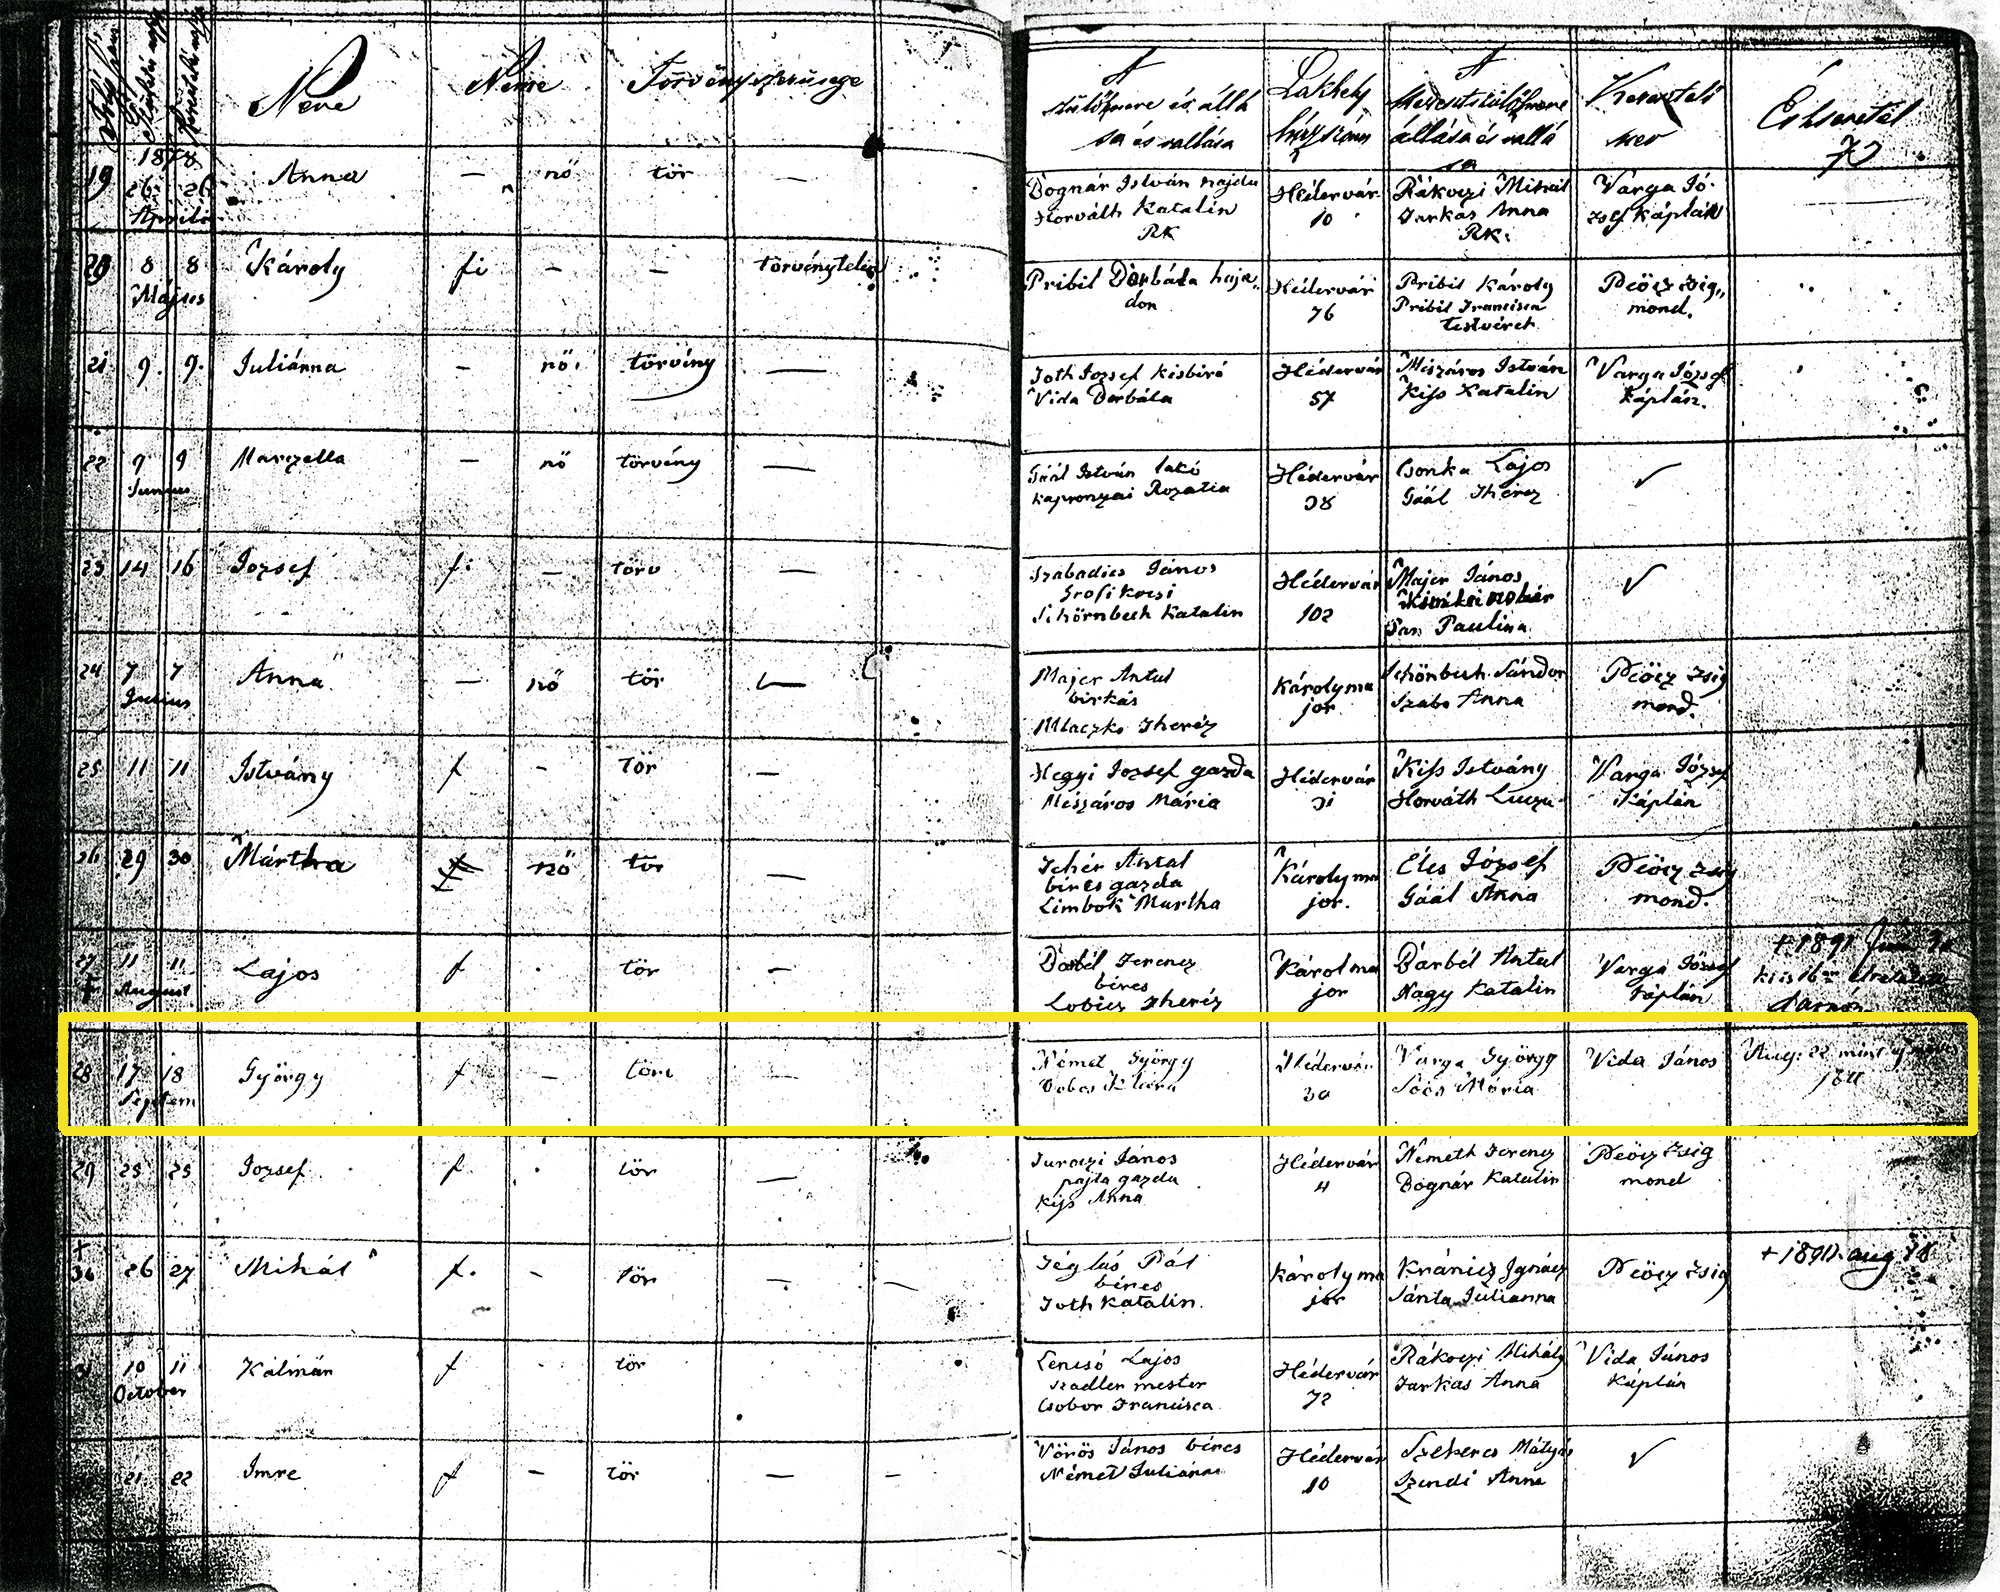 Folyó szám
Születési nap
Keresztelési nap
Neve
Neme
Törvényszerüsége
A
szülők neve és állá
sa és vallása
Lakhely
házszám
A
Keresztszülők neve
állása és vallá
sa
Keresztelő
neve
Észrevétel
70
1878
19 26 26 Anna — nő tör
Április
Bognár István hajdu
Horváth Katalin
RK
Hédervár
10
Rákoczi Mihál
Farkas Anna
RK.
Varga Jó
zsef Káplán
20 8 8 Károly fi — — törvénytelen
Május
Pribil Borbála haja„
don
Hédervár
76
Pribil Károly
Pribil Francisca
testvérek
Péócz Zsig„
mond.
21 9. 9. Juliánna — nő. törvény —
Toth Jozsef kisbiró
Vida Borbála
Hédervár
57
Mészáros István
Kiss Katalin
Varga József
káplán.
22 9 9 Marzella — nő törvény —
Junius
Gaál István lakó
Kapronyai Rozalia
Hédervár
38
Csonka Lajos
Gaál Therez
✓
23 14 16 Jozsef f. — törv —
Szabadics János
Grofi kocsi
Schörnbeck Katalin
Hédervár
102
Majer János
Paulina
✓
24 7 7 Anna — nő tör —
Julius
Majer Antal
birkás
Mlaczko Theréz
Károlyma
jor
Schönbeck Sándor
Szabo Anna
Péócz Zsig
mond.
25 11 11 Istvány f - tör —
Hegyi Jozsef gazda
Mészáros Mária
Hédervár
31
Kiss Istvány
Horváth Lucza
Varga József
Káplán
26 29 30 Mártha nő tör —
Fehér Antal
béres gazda
Limbok Martha
Károlyma
jor.
Éles József
Gáál Anna
Péócz Zsig
mond.
27 11 11 Lajos f . tör —
August
Barbél Ferencz
béres
Lobics Theréz
Károlma
jor
Barbél Antal
Nagy Katalin
Varga József
káplán
+ 1891
28 17 18 György f — törv —
Septem
Német György
Klára
Hédervár
30
Varga György
Soós Mária
Vida János
Aug. 22 mint
29 25 25 Jozsef f . tör —
Turoczi János
pajta gazda
Kiss Anna
Hédervár
4
Németh Ferencz
Bognár Katalin
Péócz Zsig
mond
+
30 26 27 Mihál f. - tör — —
Téglás Pál
béres
Toth Katalin.
Károlyma
jor
Kránicz Ignácz
Sánta Julianna
Péócz Zsig
+ 1890. aug 18
31 10 11 Kálmán f . tör
October
Lencsó Lajos
szadler mester
Csobor Francisca
Hédervár
72
Rákoczi Mihály
Farkas Anna
Vida János
Káplán
21 22 Imre f — tör — —
Vörös János béres
Német Juliánna
Hédervár
10
Szekeres Mátyás
Szendi Anna
✓